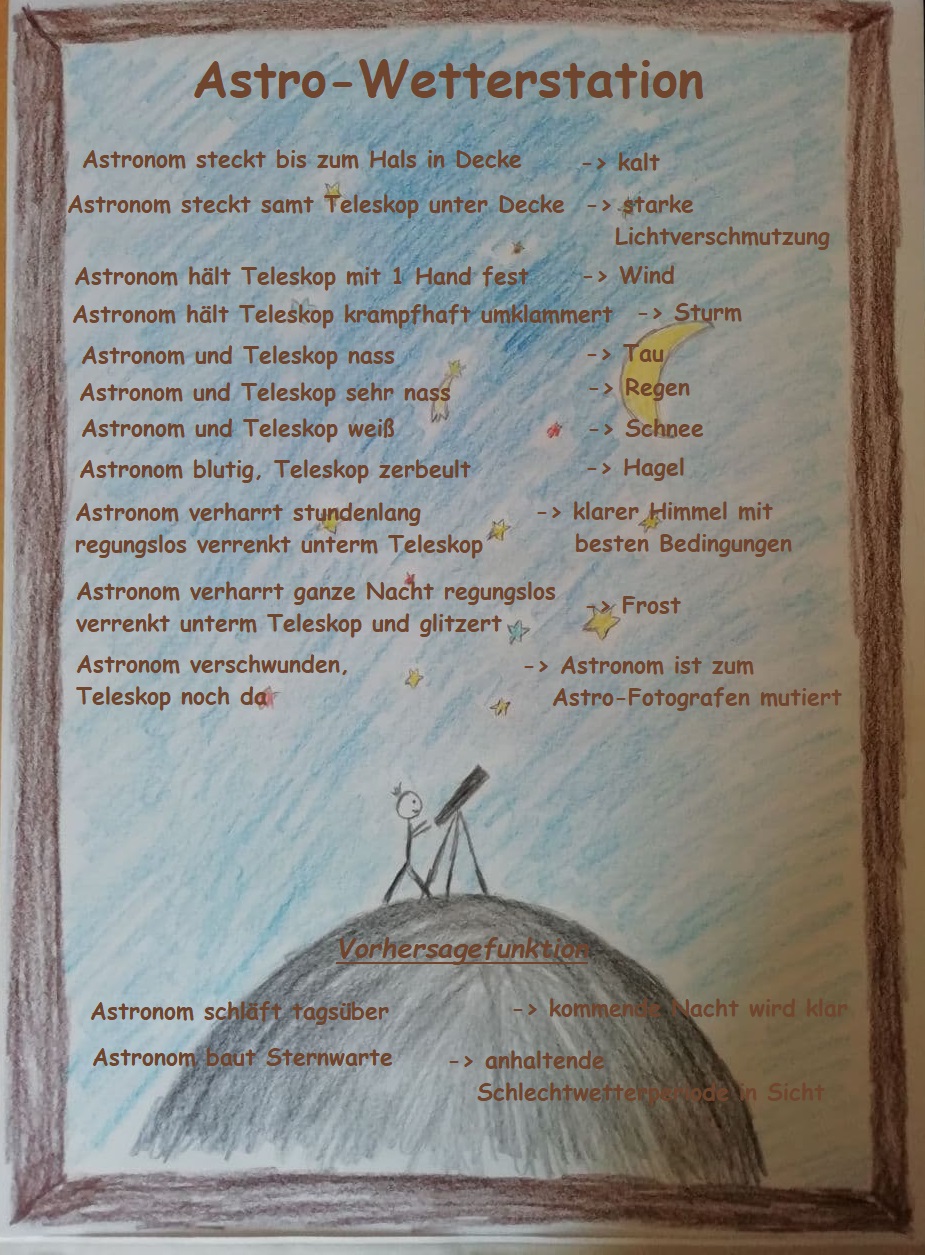 Astro-Wetterstation
Astronom steckt bis zum Hals in Decke -> kalt
Astronom steckt samt Teleskop unter Decke -> starke
Lichtverschmutzung
Astronom hält Teleskop mit 1 Hand fest -> Wind
Astronom hält Teleskop krampfhaft umklammert -> Sturm
Astronom und Teleskop nass -> Tau
Astronom und Teleskop sehr nass -> Regen
Astronom und Teleskop weiß -> Schnee
Astronom blutig, Teleskop zerbeult -> Hagel
Astronom verharrt stundenlang -> klarer Himmel mit
regungslos verrenkt unterm Teleskop besten Bedingungen
Astronom verharrt ganze Nacht regungslos
-> Frost
verrenkt unterm Teleskop und glitzert
Astronom verschwunden, -> Astronom ist zum
Teleskop noch da Astro-Fotografen mutiert
Vorhersagefunktion
Astronom schläft tagsüber -> kommende Nacht wird klar
Astronom baut Sternwarte -> anhaltende
Schlechtwetterperiode in Sicht